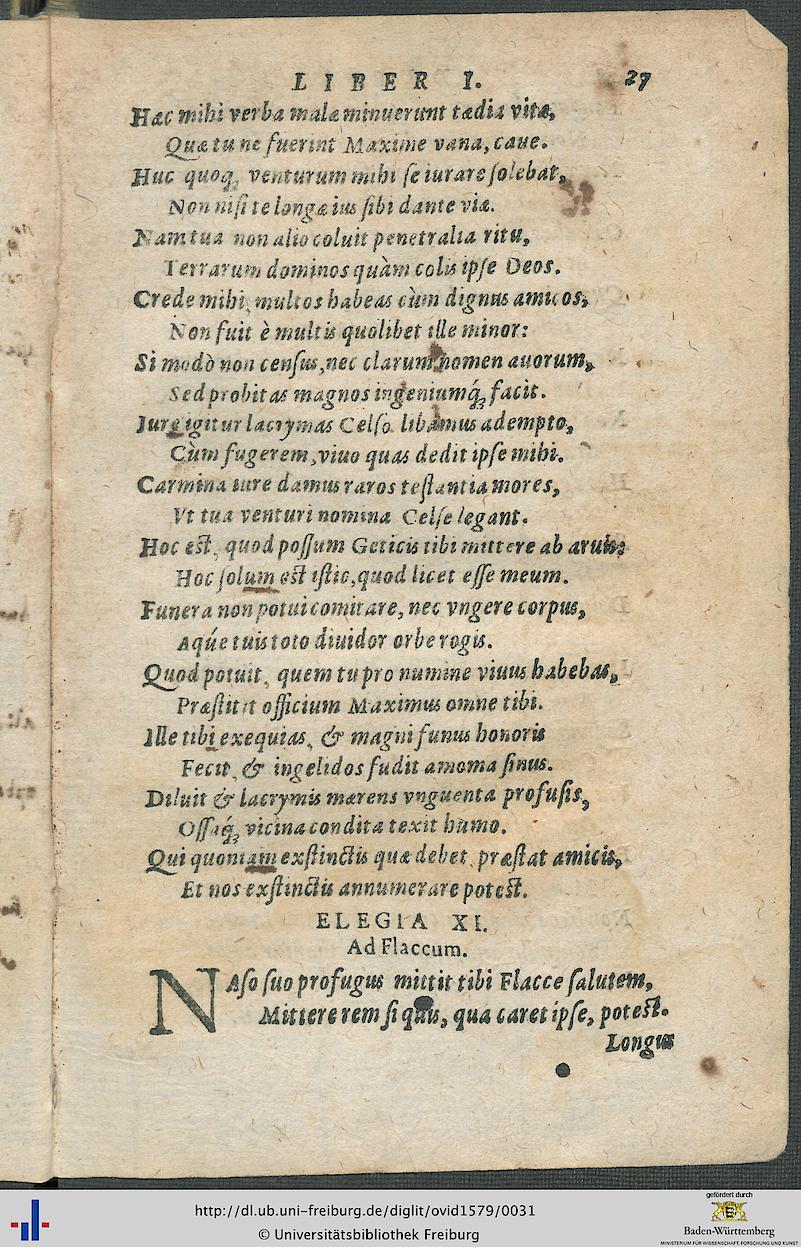 LIBER I. 27
Hæc mihi verba malæ minuerunt tædia vitæ,
Quæ tu ne fuerint Maxime vana, caue.
Huc quoq; venturum mihi se iurare solebat,
Non nisi te longæ ius sibi dante viæ.
Nam tua non alio coluit penetralia ritu,
Terrarum dominos quàm colis ipse Deos.
Crede mihi, multos habeas cùm dignus amicos,
Non fuit è multis quolibet ille minor:
Si modò non census, nec clarum nomen auorum,
Sed probitas magnos ingeniumq́; facit.
Iure igitur lacrymas Celso libamus adempto,
Cùm fugerem, viuo quas dedit ipse mihi.
Carmina iure damus raros testantia mores,
Vt tua venturi nomina Celse legant.
Hoc est, quod possum Geticis tibi mittere ab aruis:
Hoc solum est istic, quod licet esse meum.
Funera non potui comitare, nec vngere corpus,
Aq́ue tuis toto diuidor orbe rogis.
Quod potuit, quem tu pro numine viuus habebas,
Præstitit officium Maximus omne tibi.
Ille tibi exequias, & magni funus honoris
Fecit, & in gelidos fudit amoma sinus.
Diluit & lacrymis mærens vnguenta profusis,
Ossaq́; vicina condita texit humo.
Qui quoniam exstinctis quæ debet, præstat amicis,
Et nos exstinctis annumerare potest.
ELEGIA XI.
Ad Flaccum.
NAso suo profugus mittit tibi Flacce salutem,
Mittere rem si quis, qua caret ipse, potest.
Longus
http://dl.ub.uni-freiburg.de/diglit/ovid1579/0031
© Universitätsbibliothek Freiburg
gefördert durch
Baden-Württemberg
MINISTERIUM FÜR WISSENSCHAFT, FORSCHUNG UND KUNST